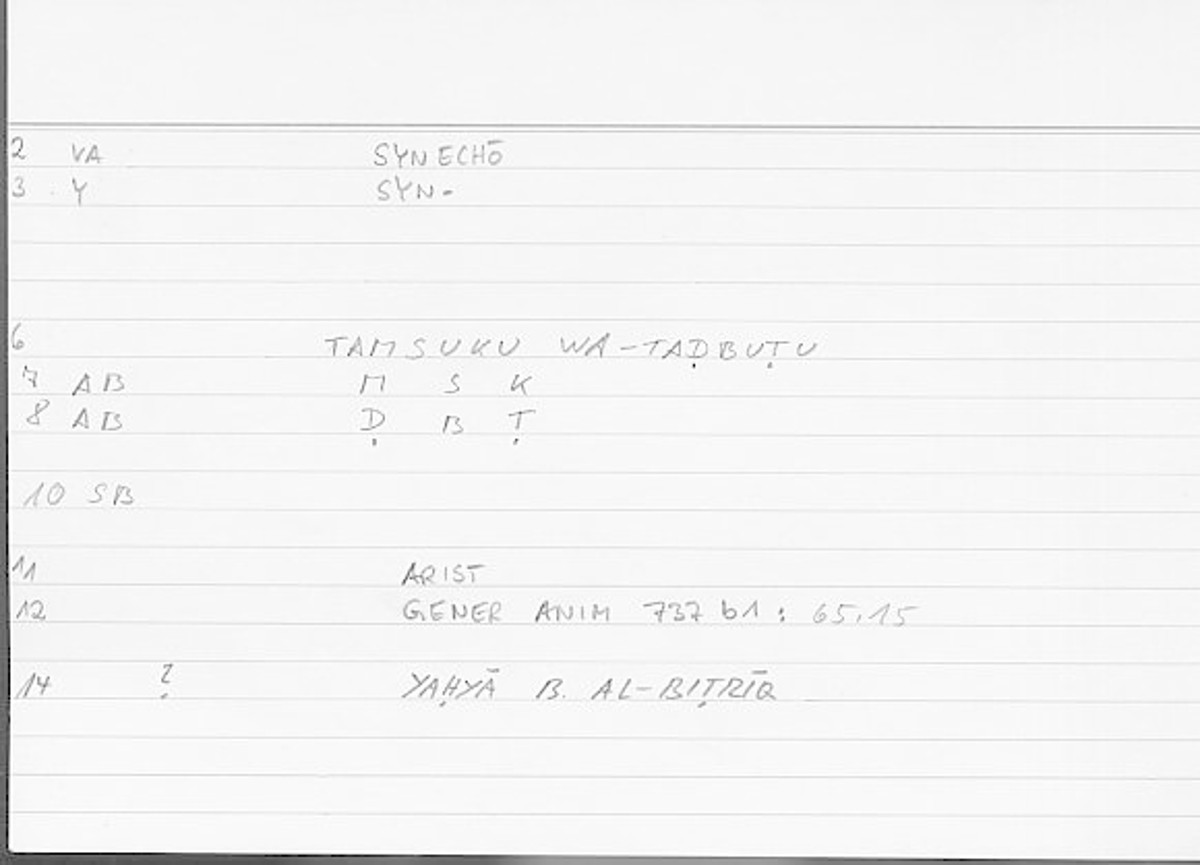 2 VA SYNECHŌ
3 Y SYN-
6 TAMSUKU WA-TAḌBUṬU
7 AB M S K
8 AB Ḍ B Ṭ
10 SB
11 ARIST
12 GENER ANIM 737 b1 : 65.15
14 ? YAḤYĀ B. AL-BIṬRĪQ